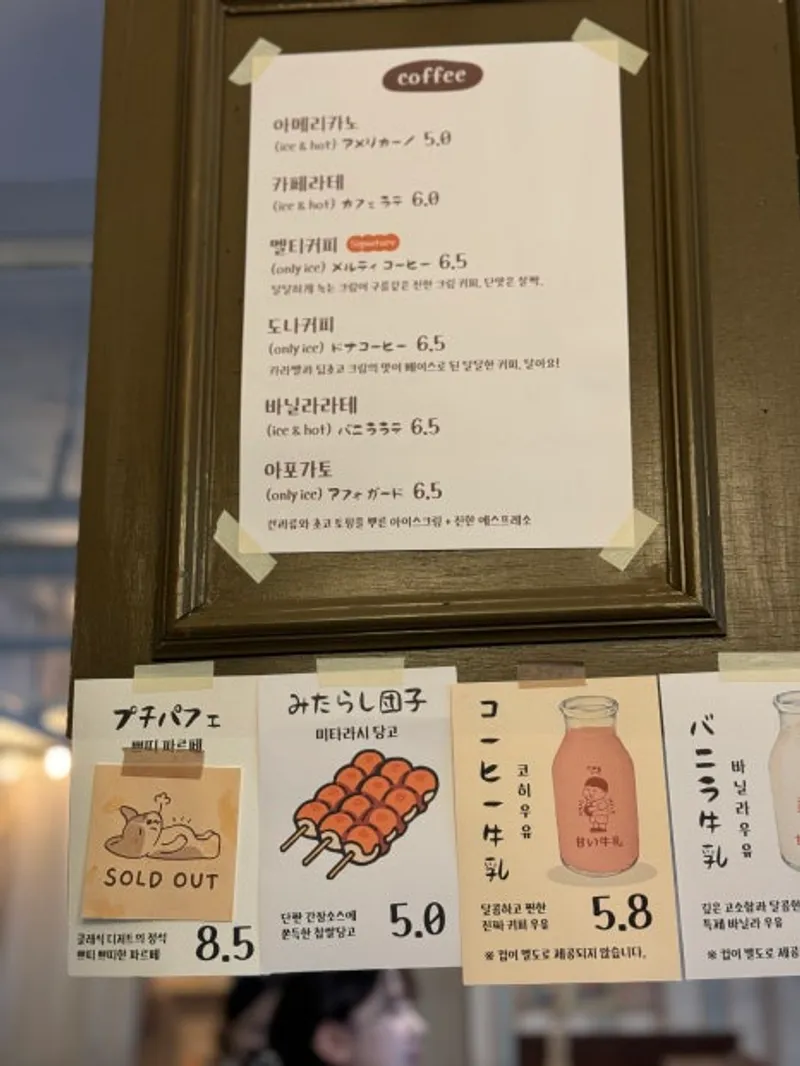 coffee
아메리카노
(ice & hot) アメリカーノ 5.0
카페라떼
(ice & hot) カフェラテ 6.0
멜티커피 Signature
(only ice) メルティコーヒー 6.5
달달하게 녹는 크림이 구름같은 진한 크림 커피, 단맛은 살짝.
도나커피
(only ice) ドナコーヒー 6.5
카라멜과 딥초코 크림의 맛이 베이스로 된 달달한 커피, 달아요!
바닐라라떼
(ice & hot) バニララテ 6.5
아포가토
(only ice) アフォガード 6.5
견과류와 초코 토핑을 뿌른 아이스크림 + 진한 에스프레소
プチパフェ
쁘띠 파르페
SOLD OUT
클래식 디저트의 정석
쁘띠 쁘띠한 파르페
8.5
みたらし団子
미타라시 당고
단짠 간장소스에
쫀득한 찹쌀당고
5.0
コーヒー牛乳
코히우유
甘い牛乳
달콤하고 찐한
진짜 커피 우유
5.8
※ 컵이 별도로 제공되지 않습니다.
バニラ牛乳
바닐라우유
깊은 고소함과 달콤한
특제 바닐라 우유
※ 컵이 별도로 제공